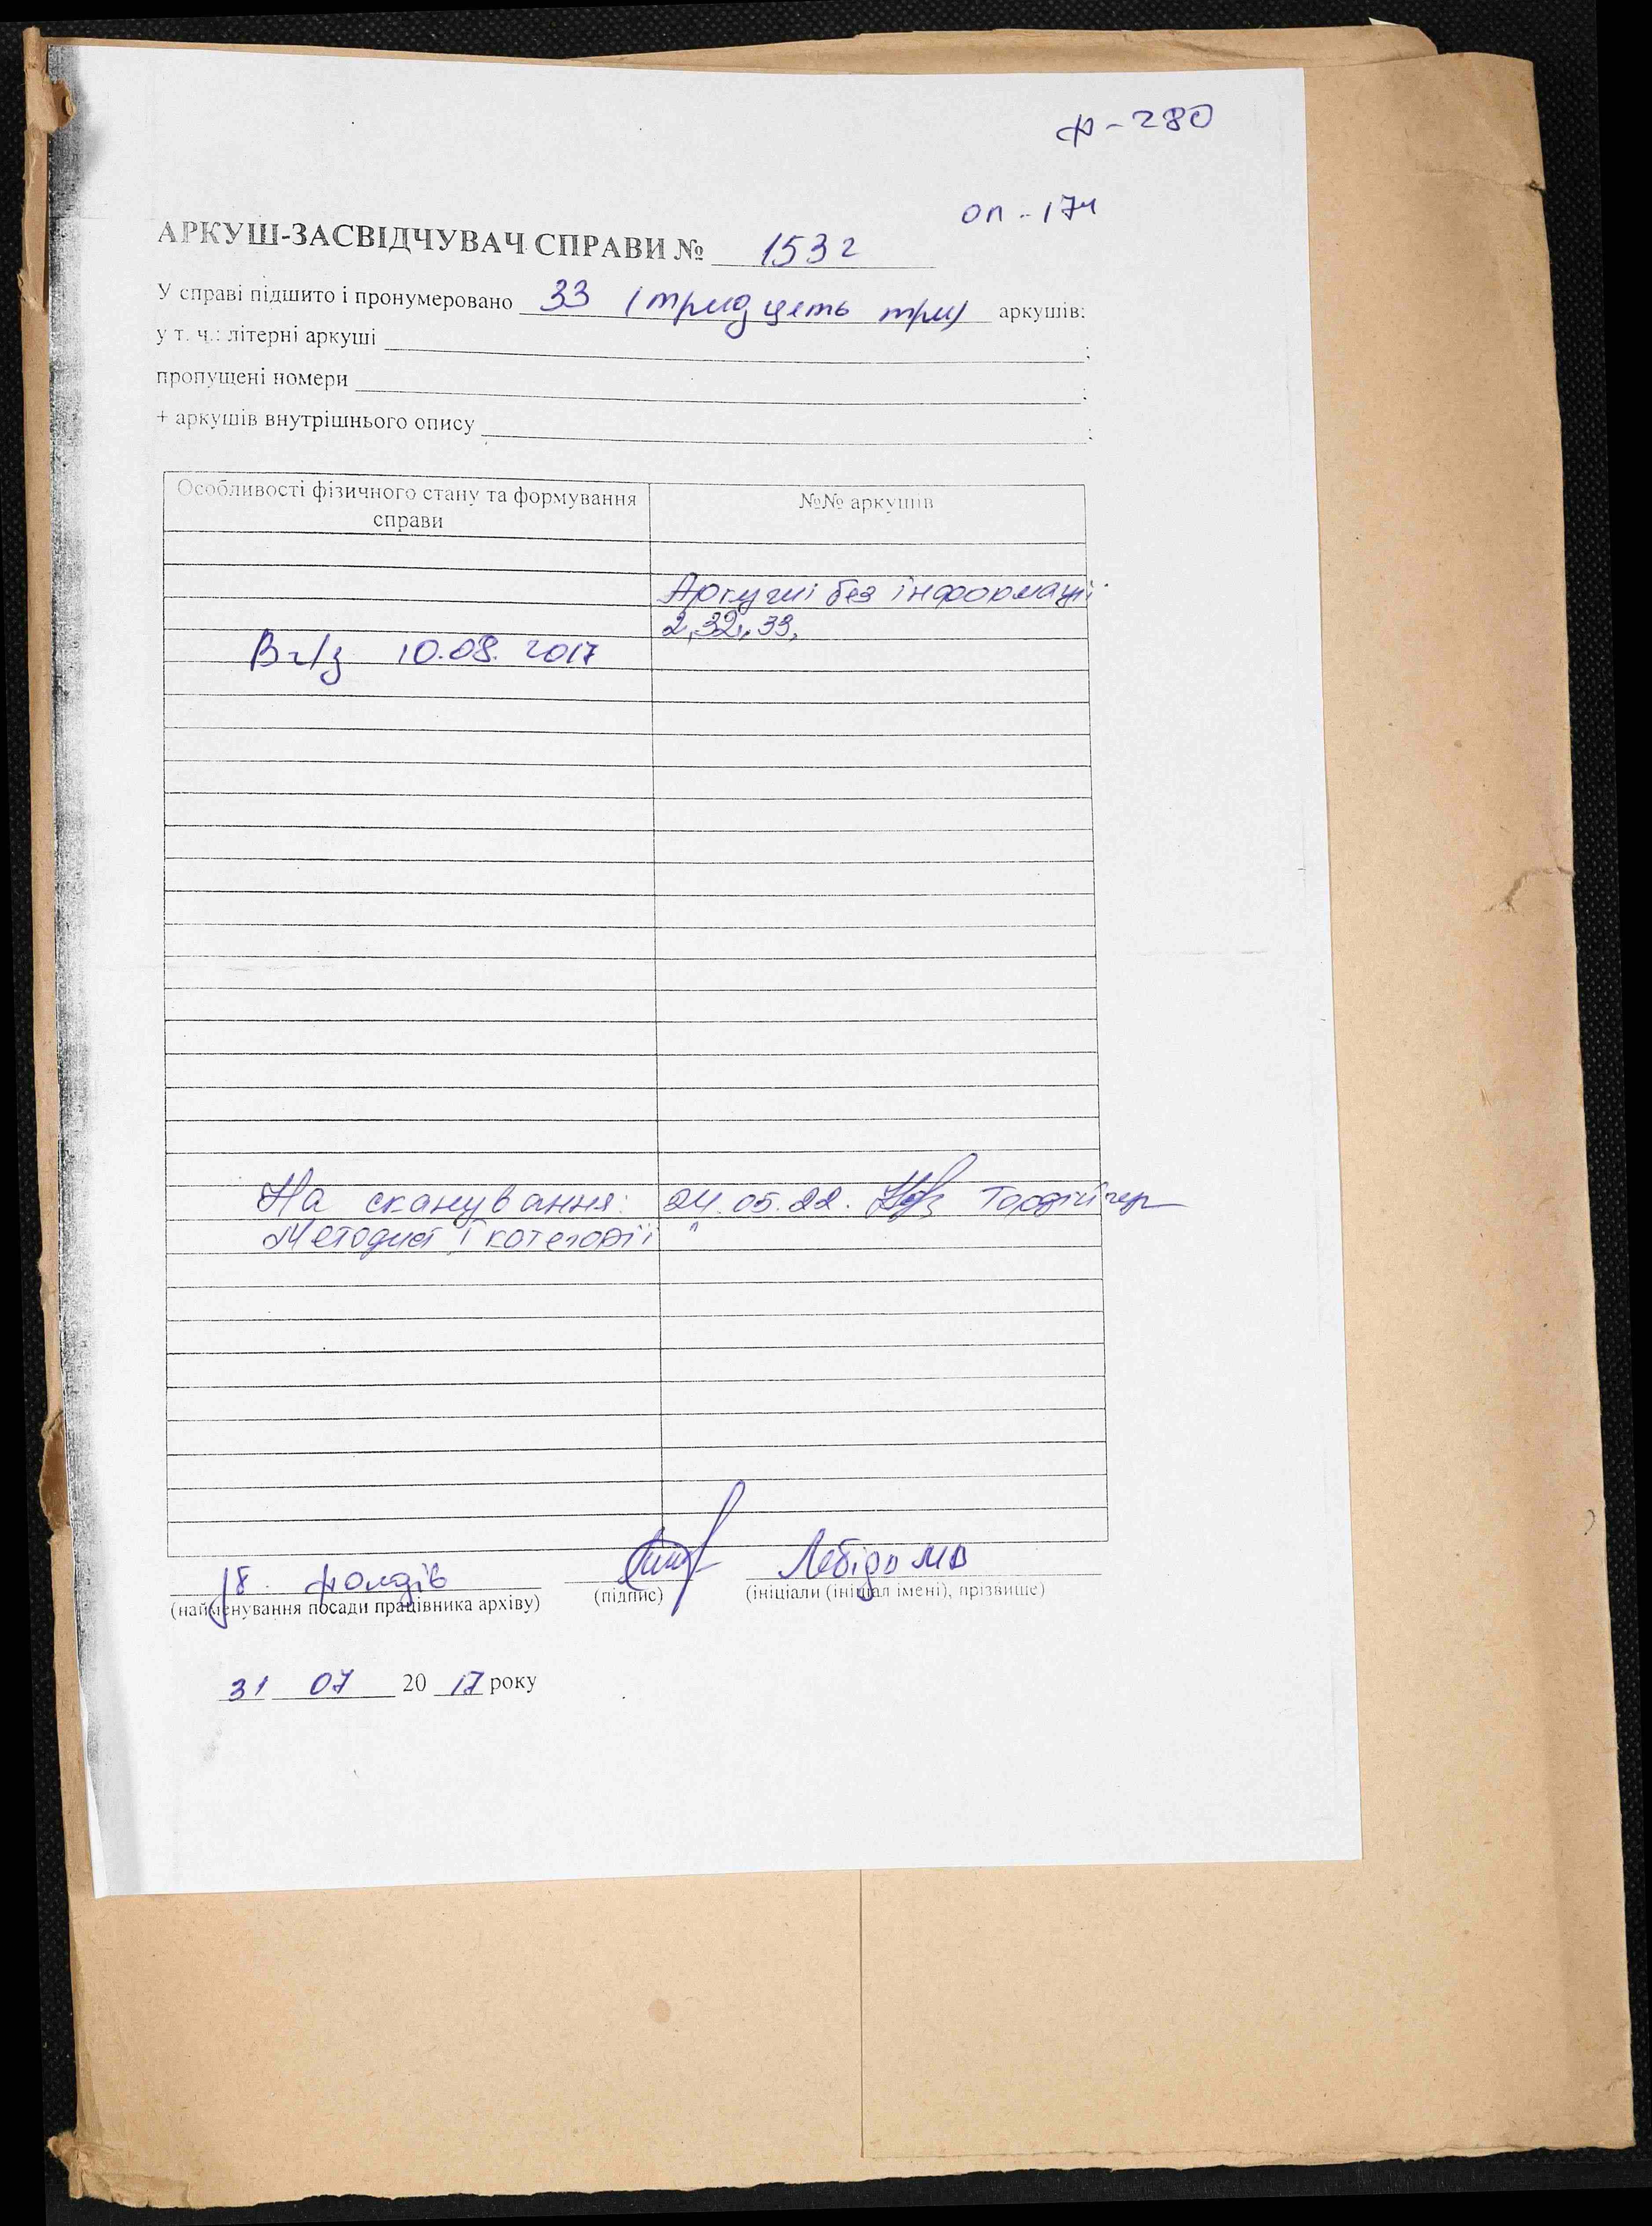 ф-280
оп-174
АРКУШ-ЗАСВІДЧУВАЧ СПРАВИ № 1532
У справі підшито і пронумеровано 33 (тридцять три) аркушів:
у т. ч.: літерні аркуші ;
пропущені номери ;
+ аркушів внутрішнього опису ;
Особливості фізичного стану та формування справи
№№ аркушів
Аркуші без інформації
2, 32, 33,
В ч/з 10.08.2017
На сканування: 24.05.22.
Методист I категорії "
фондів
Лебідь
(найменування посади працівника архіву) (підпис) (ініціали (ініціал імені), прізвище)
31 07 20 17 року